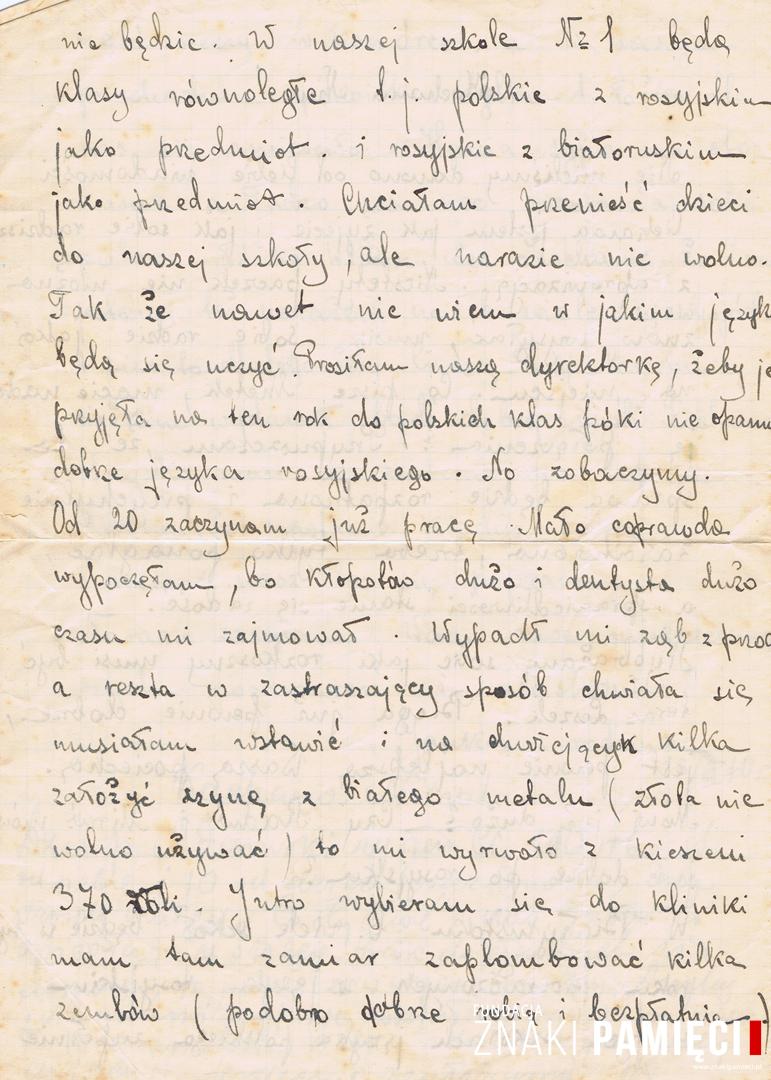 nie będzie. W naszej szkole № 1 będą
klasy równoległe t.j. polskie z rosyjskim
jako przedmiot. i rosyjskie z białoruskim
jako przedmiot. Chciałam przenieść dzieci
do naszej szkoły, ale narazie nie wolno.
Tak że nawet nie wiem w jakim język
będą się uczyć. Prosiłam naszą dyrektorkę, żeby je
przyjęła na ten rok do polskich klas póki nie opanu
dobrze języka rosyjskiego. No zobaczymy.
Od 20 zaczynam już pracę. Mało coprawda
wypoczęłam, bo kłopotów dużo i dentysta dużo
czasu mi zajmował. Wypadł mi ząb z przod
a reszta w zastraszający sposób chwiała się
musiałam wstawić i na chwiejących kilka
założyć szynę z białego metalu (złota nie
wolno używać) to mi wyrwało z kieszeni
370 . Jutro wybieram się do kliniki
mam tam zamiar zaplombować kilka
zembów (podobno dobrze robią i bezpłatnie.)
FUNDACJA
ZNAKI PAMIĘCI
www.znakipamieci.pl